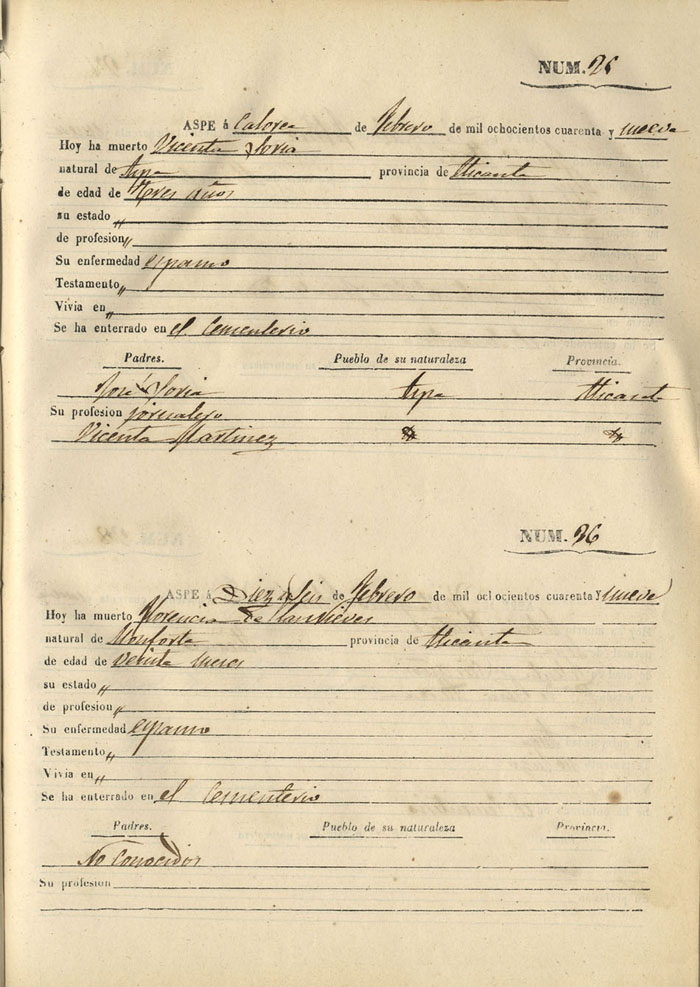 NUM. 25
ASPE á Catorce de Febrero de mil ochocientos cuarenta y nueve
Hoy ha muerto Vicenta Soria
natural de Aspe provincia de Alicante
de edad de tres años
su estado „
de profesion „
Su enfermedad espasmo
Testamento „
Vivia en „
Se ha enterrado en el Cementerio
Padres. Pueblo de su naturaleza Provincia.
José Soria Aspe Alicante
Su profesion jornalero
Vicenta Martinez
NUM. 26
ASPE á Diez y Seis de Febrero de mil ochocientos cuarenta y nueve
Hoy ha muerto Florencia de las Nieves
natural de Monforte provincia de Alicante
de edad de veinte meses
su estado „
de profesion „
Su enfermedad espasmo
Testamento „
Vivia en „
Se ha enterrado en el Cementerio
Padres. Pueblo de su naturaleza Provincia.
No Conocidos
Su profesion